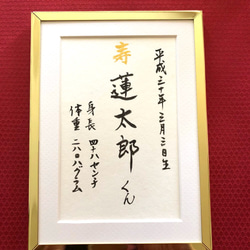 平成三十年三月三日生
寿
蓮太郎くん
身長 四十八センチ
体重 二八〇八グラム